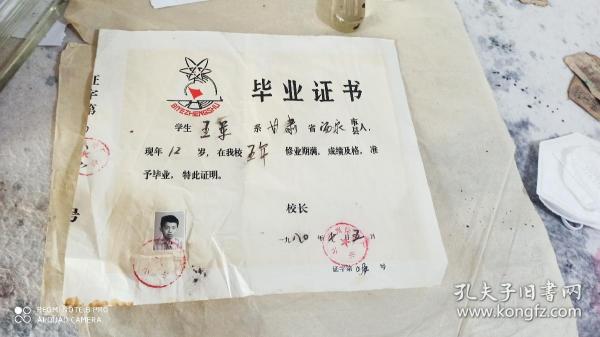 证字第
号
BIYEZHENGSHU
毕业证书
学生 王军 系 甘肃 省 酒泉 市县人,
现年 12 岁, 在我校 五年 修业期满, 成绩及格, 准
予毕业, 特此证明。
校长
一九八〇年七月五日
证字第 号
REDMI NOTE 8 PRO
AI QUAD CAMERA
孔夫子旧书网
www.kongfz.com